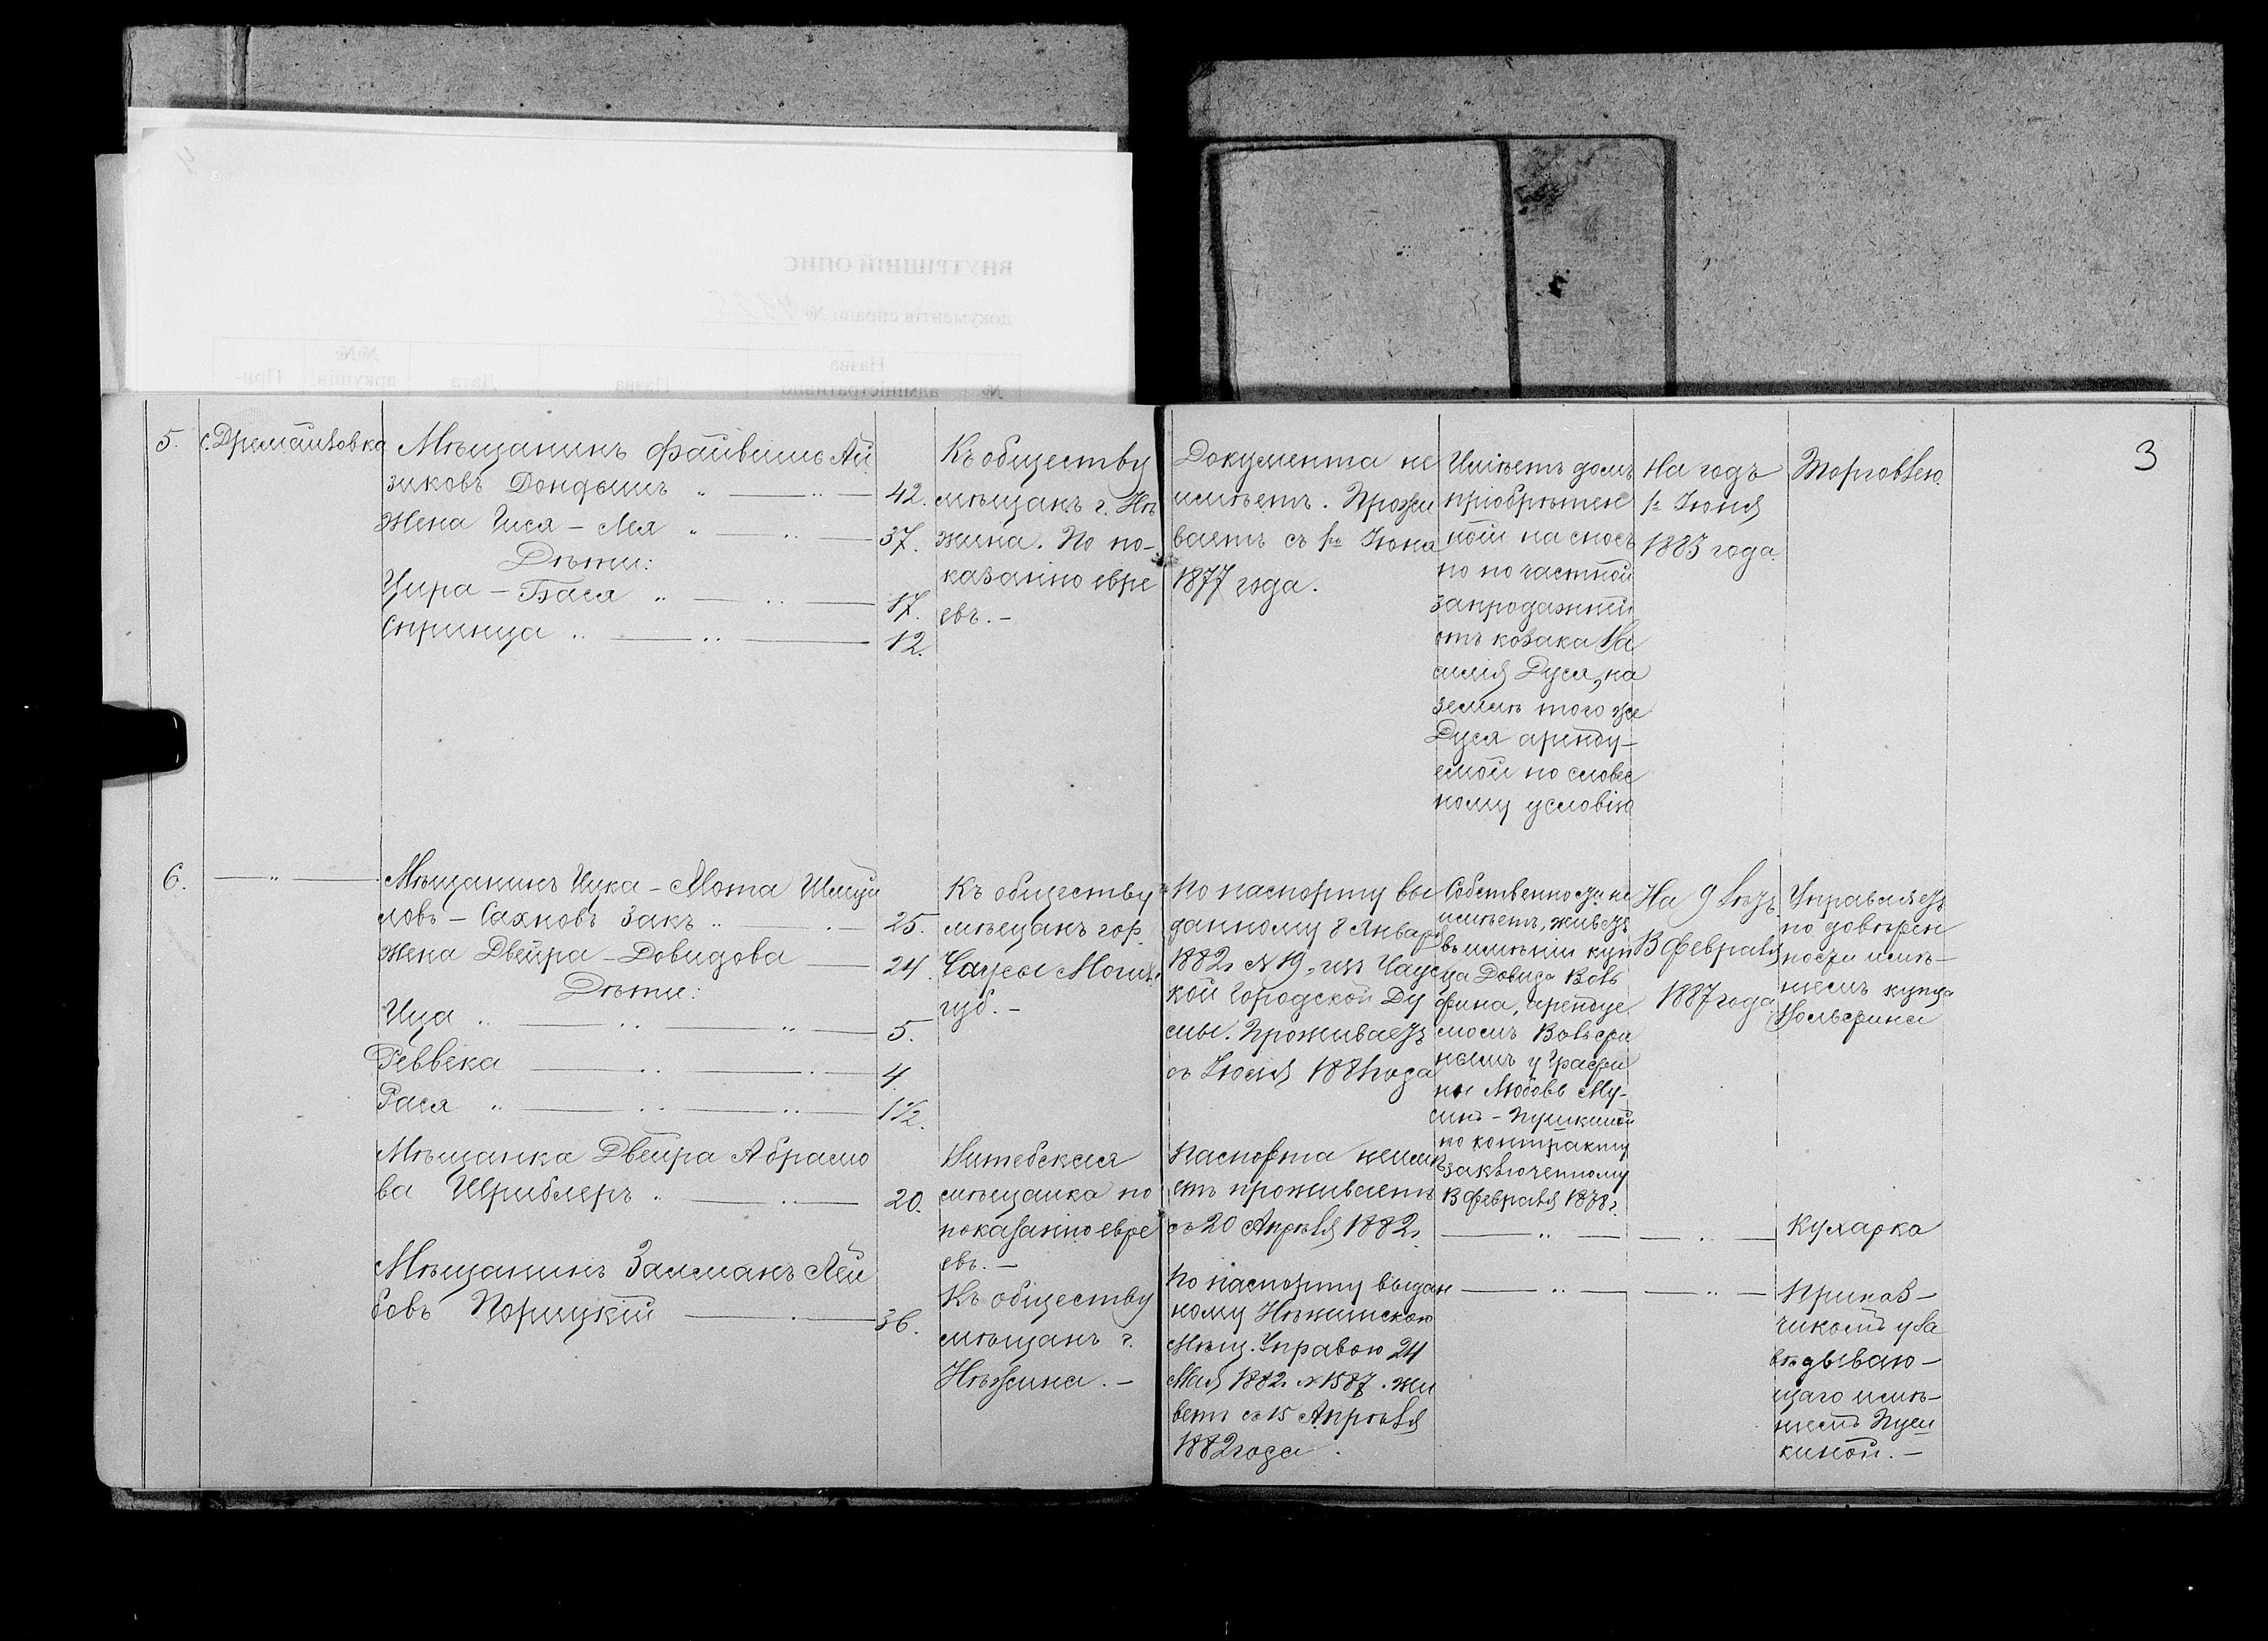 3
5.
с. Дремайловка
Мѣщанинъ Файвишъ Ай
зиковъ Дондышъ " — " — 42.
Жена Гися - Лея " — " — 37.
Дѣти:
Цира - Бася " — " — 17.
Спринца " — " — 12.
Къ обществу
мѣщанъ г. Нѣ
жина. По по-
казанію евре
евъ. -
Документа не
имѣетъ. Прожи
ваетъ съ 1го Іюня
1877 года.
Имѣетъ домъ
пріобрѣтен
ный на сносъ
но по частной
запродажной
отъ козака Ва
силія Дуся, на
землѣ того же
Дуся аренду-
емой по словес
ному условію
На годъ
1го Іюня
1883 года.
Торговлею
6.
— " —
Мѣщанинъ Ицка - Мота Шмуй
ловъ - Сахновъ Закъ " — " — 25.
Жена Двейра - Довидова — 24.
Дѣти:
Ица " — " — " — 5.
Реввека — " — " — 4.
Рася " — " — " — 1 1/2.
Къ обществу
мѣщанъ гор.
Чаусы Могил.
губ. -
По паспорту вы
данному 8 Января
1882 г. № 19, изъ Чаус
кой Городской Ду
мы. Проживаетъ
съ 1881 года
Собственности не
имѣетъ, живетъ
въ имѣніи куп
ца Довида Воль
фина, арендуе
момъ Вольфи
нымъ у Графи
ни Любовь Му-
синъ - Пушкиной
по контракту
заключенному
13 Февраля 1878 г.
На 9 лѣтъ
13 Февраля
1887 года.
Управляетъ
по довѣрен
ности имѣ-
ніемъ купца
Вольфина
Мѣщанка Двейра Абрамо
ва Шриблеръ " — " — 20.
Витебская
мѣщанка по
показанію евре
евъ. -
Паспорта не имѣ
етъ проживаетъ
съ 20 Апрѣля 1882 г.
— " — — " —
Кухарка
Мѣщанинъ Залманъ Лей
бовъ Порицкій — " — 36.
Къ обществу
мѣщанъ г.
Нѣжина. -
По паспорту выдан
ному Нѣжинскою
Мѣщ. Управою 24
Мая 1882 г. № 1587. жи
ветъ съ 15 Апрѣля
1882 года.
— " — — " —
Приказ-
чикомъ у за
вѣдываю-
щаго имѣ-
ніемъ Пуш
киной. -
ВНУТРІШНІЙ ОПИС
документів справи №
№
Назва
адміністративно
Назва
Дата
№№
аркушів
При-